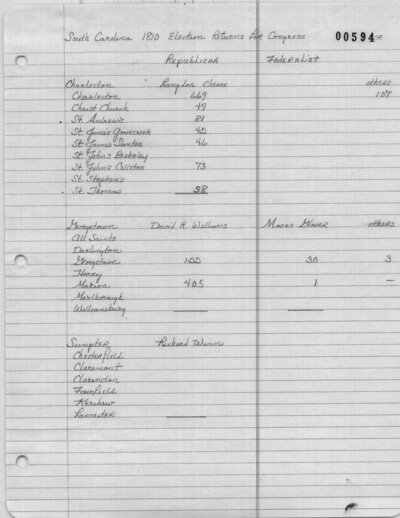 South Carolina 1810 Election Returns For Congress 00594
Republican Federalist
Charleston Langdon Cheves others
Charleston 669 107
Christ Church 49
St. Andrew's 81
St. James Goosecreek 40
St. James Santee 46
St. John's Berkeley
St. John's Colleton 73
St. Stephen's
St. Thomas 38
Georgetown David R Williams Moses Glover others
All Saints
Darlington
Georgetown 100 30 3
Horry
Marion 405 1 —
Marlborough
Williamsburg
Sumpter Richard Winn
Chesterfield
Claremont
Clarendon
Fairfield
Kershaw
Lancaster